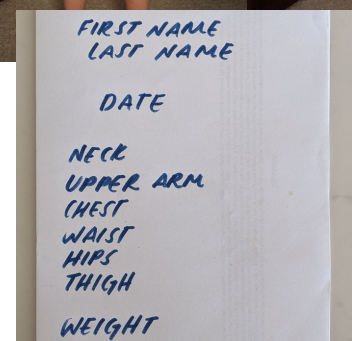 FIRST NAME
LAST NAME
DATE
NECK
UPPER ARM
CHEST
WAIST
HIPS
THIGH
WEIGHT